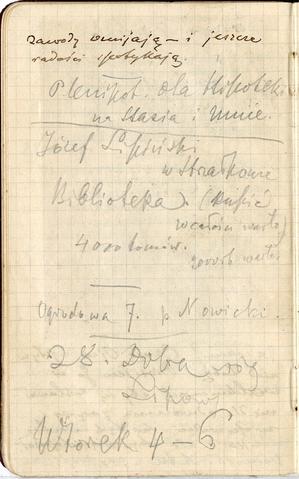 Zawody omijają – i jeszcze
radości spotykają.
Plenipot. dla Hipoteki
na Stasia i mnie.
Józef Lipiński
w Strałkowie
Biblioteka). (Kupić
w całości warto)
4000 tomów.
warto
Ogrodowa 7. p Nowicki.
28. Dobra róg
Lipowej
Wtorek 4 – 6